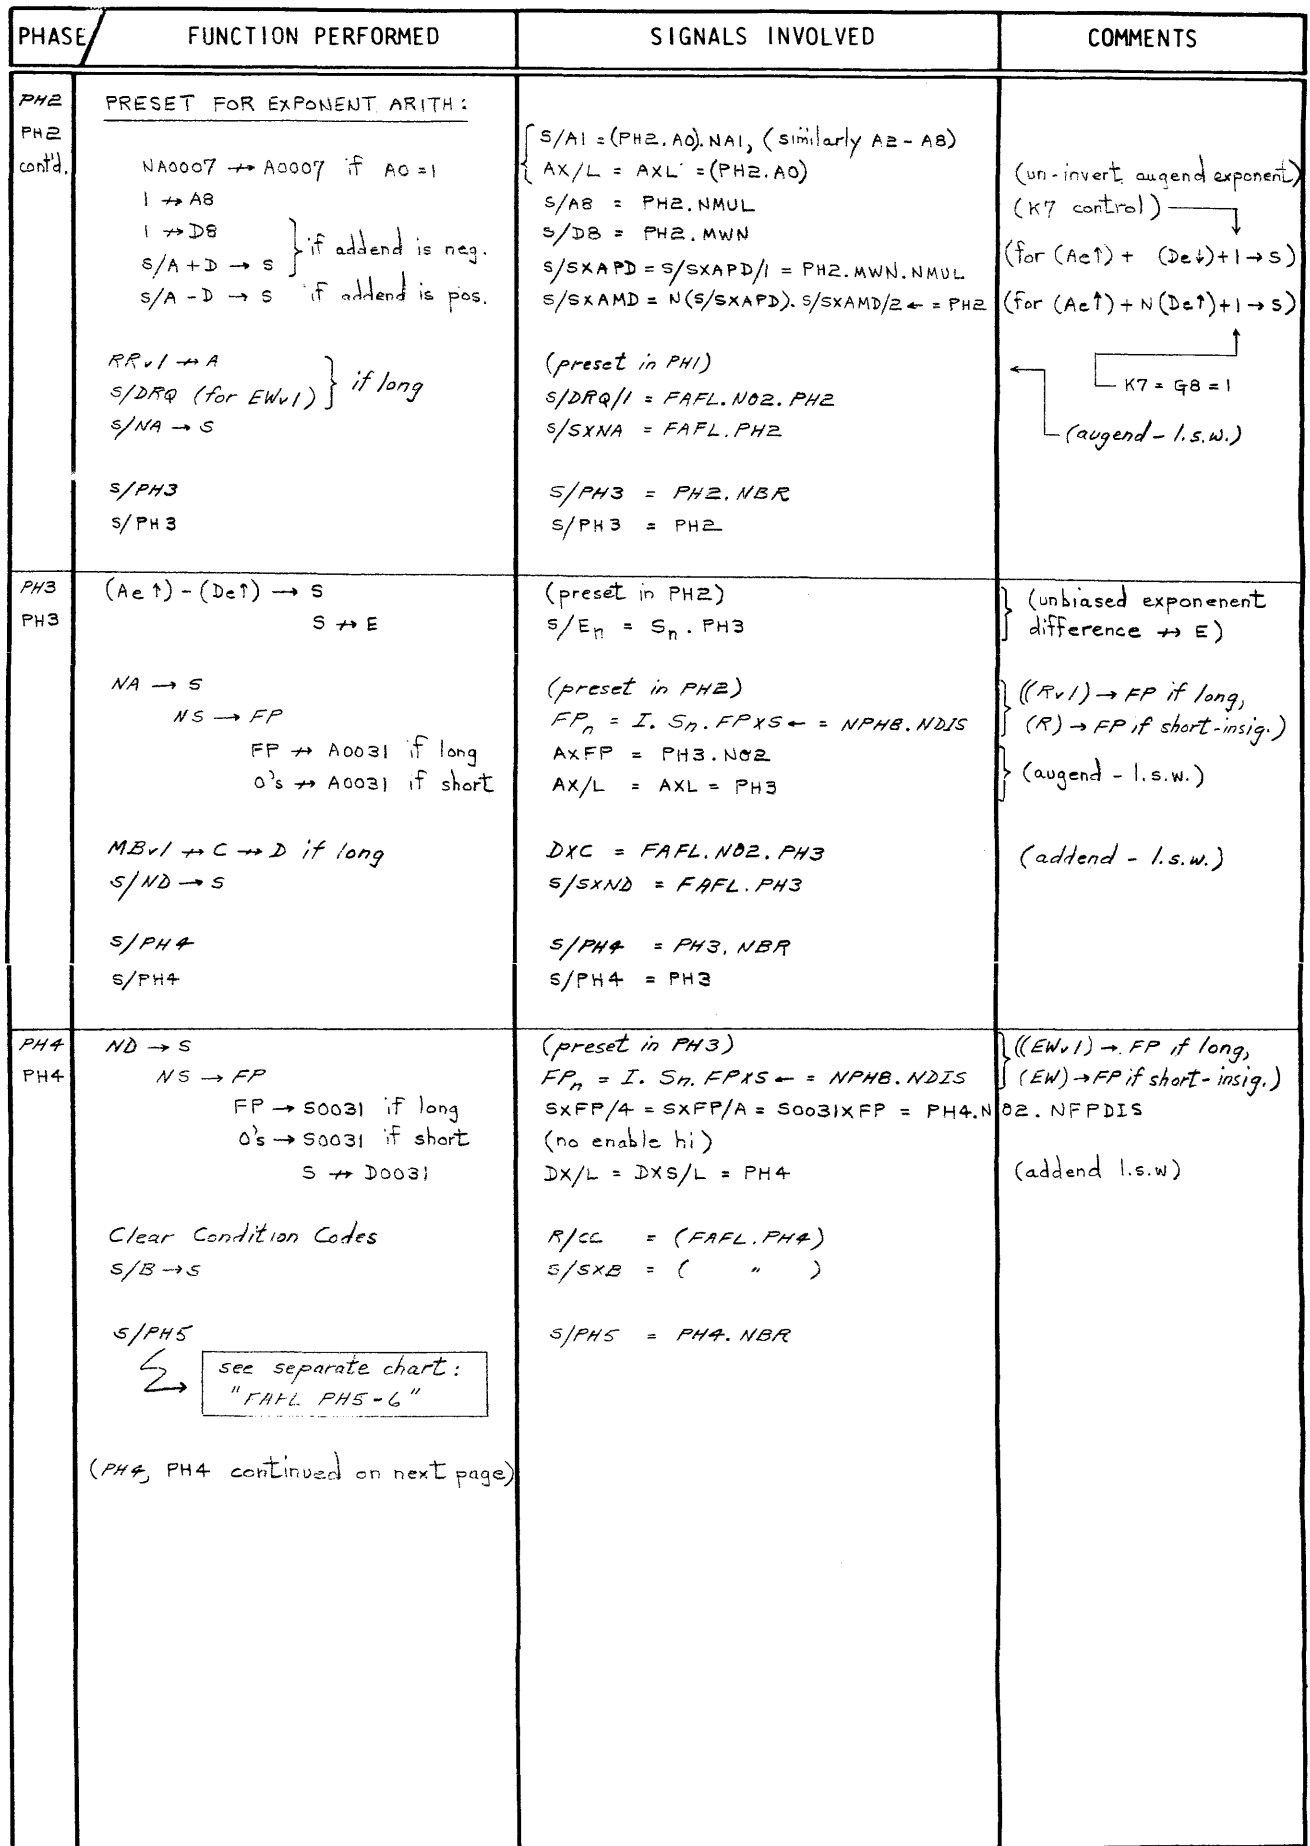 PHASE FUNCTION PERFORMED SIGNALS INVOLVED COMMENTS
PH2 PRESET FOR EXPONENT ARITH:
PH2 S/A1 = (PH2.A0).NA1, (similarly A2 - A8)
cont'd. NA0007 ↛ A0007 if A0 = 1 AX/L = AXL = (PH2.A0) (un-invert augend exponent)
1 ↛ A8 S/A8 = PH2.NMUL (K7 control)
1 ↛ D8 S/D8 = PH2.MWN
S/A + D → S } if addend is neg. S/SXAPD = S/SXAPD/1 = PH2.MWN.NMUL (for (Ae↑) + (De↓)+1 → S)
S/A - D → S if addend is pos. S/SXAMD = N(S/SXAPD). S/SXAMD/2 ← = PH2 (for (Ae↑) + N(De↑)+1 → S)
RRv1 ↛ A (preset in PH1)
S/DRQ (for EWv1) } if long S/DRQ/1 = FAFL.NO2.PH2 K7 = G8 = 1
S/NA → S S/SXNA = FAFL.PH2 (augend - l.s.w.)
S/PH3 S/PH3 = PH2.NBR
S/PH3 S/PH3 = PH2
PH3 (Ae↑) - (De↑) → S (preset in PH2) (unbiased exponenent
PH3 S ↛ E S/En = Sn.PH3 difference ↛ E)
NA → S (preset in PH2) ((Rv1) → FP if long,
NS → FP FPn = I. Sn. FPXS ← = NPH8.NDIS (R) → FP if short-insig.)
FP ↛ A0031 if long AXFP = PH3.NO2
0's ↛ A0031 if short AX/L = AXL = PH3 (augend - l.s.w.)
MBv1 ↛ C ↛ D if long DXC = FAFL.NO2.PH3 (addend - l.s.w.)
S/ND → S S/SXND = FAFL.PH3
S/PH4 S/PH4 = PH3.NBR
S/PH4 S/PH4 = PH3
PH4 ND → S (preset in PH3) ((EWv1) → FP if long,
PH4 NS → FP FPn = I. Sn. FPXS ← = NPH8.NDIS (EW) → FP if short-insig.)
FP → S0031 if long SXFP/4 = SXFP/A = S0031XFP = PH4.NO2.NFPDIS
0's → S0031 if short (no enable hi)
S ↛ D0031 DX/L = DXS/L = PH4 (addend l.s.w)
Clear Condition Codes R/CC = (FAFL.PH4)
S/B → S S/SXB = ( " )
S/PH5 S/PH5 = PH4.NBR
see separate chart:
"FAFL PH5-6"
(PH4, PH4 continued on next page)